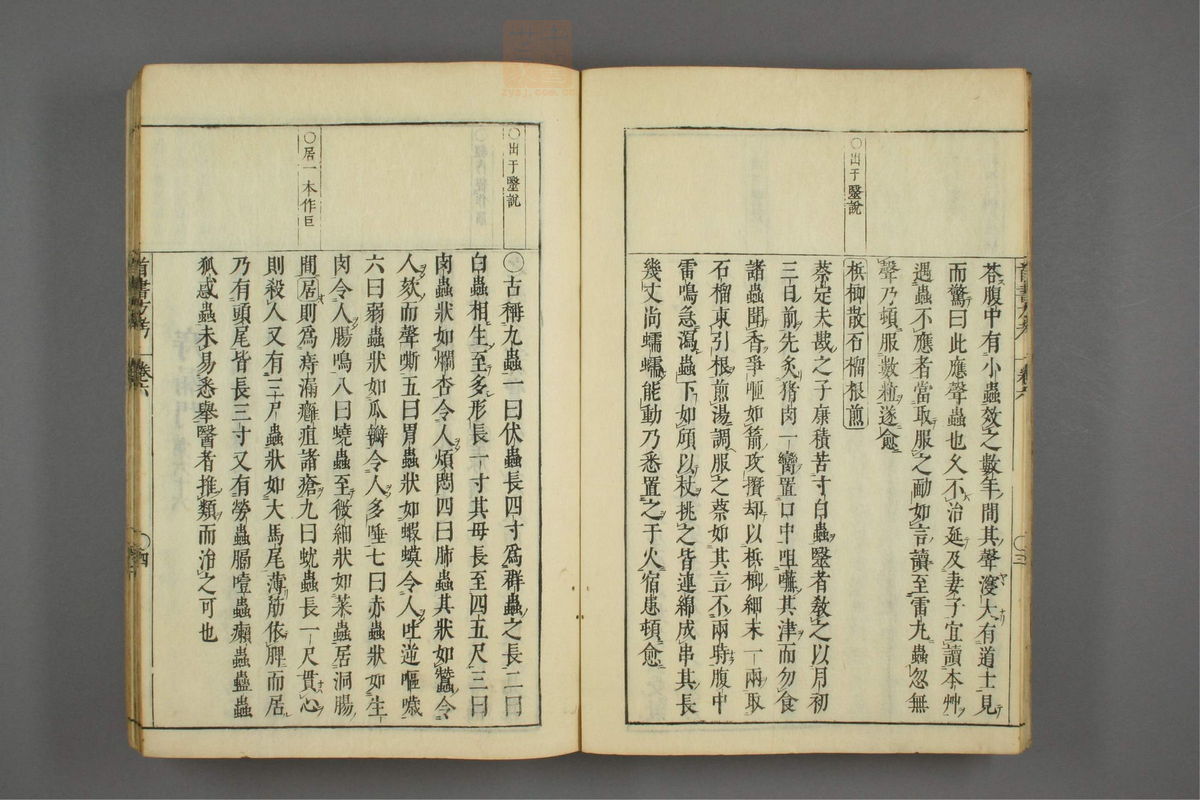 荅腹中有小蟲效之數年間其聲寖大有道士見
而驚曰此應聲蟲也久不治延及妻子宜讀本艸
遇蟲不應者當取服之勔如言讀至雷丸蟲忽無
聲乃頓服數粒遂愈
○出于醫說
梹榔散石榴根煎
蔡定夫戡之子康積苦寸白蟲醫者教之以月初
三日前先炙猪肉一臠置口中咀嚥其津而勿食
諸蟲聞香爭咂如箭攻攢却以梹榔細末一兩取
石榴東引根煎湯調服之蔡如其言不兩時腹中
雷鳴急瀉蟲下如傾以杖挑之皆連綿成串其長
幾丈尚蠕蠕能動乃悉置之于火宿患頓愈
○出于醫說
○古稱九蟲一曰伏蟲長四寸爲群蟲之長二曰
白蟲相生至多形長一寸其母長至四五尺三曰
肉蟲狀如爛杏令人煩悶四曰肺蟲其狀如蠶令
人欬而聲嘶五曰胃蟲狀如蝦蟆令人吐逆嘔噦
六曰弱蟲狀如瓜瓣令人多唾七曰赤蟲狀如生
肉令人腸鳴八曰蟯蟲至微細狀如菜蟲居洞腸
○居一本作巨
間居則爲痔漏癰疽諸瘡九曰蚘蟲長一尺貫心
則殺人又有三尸蟲狀如大馬尾薄筋依脾而居
乃有頭尾皆長三寸又有勞蟲膈噎蟲癩蟲蠱蟲
狐惑蟲未易悉舉醫者推類而治之可也
首書方考
卷六
○三
首書方考
卷六
○四